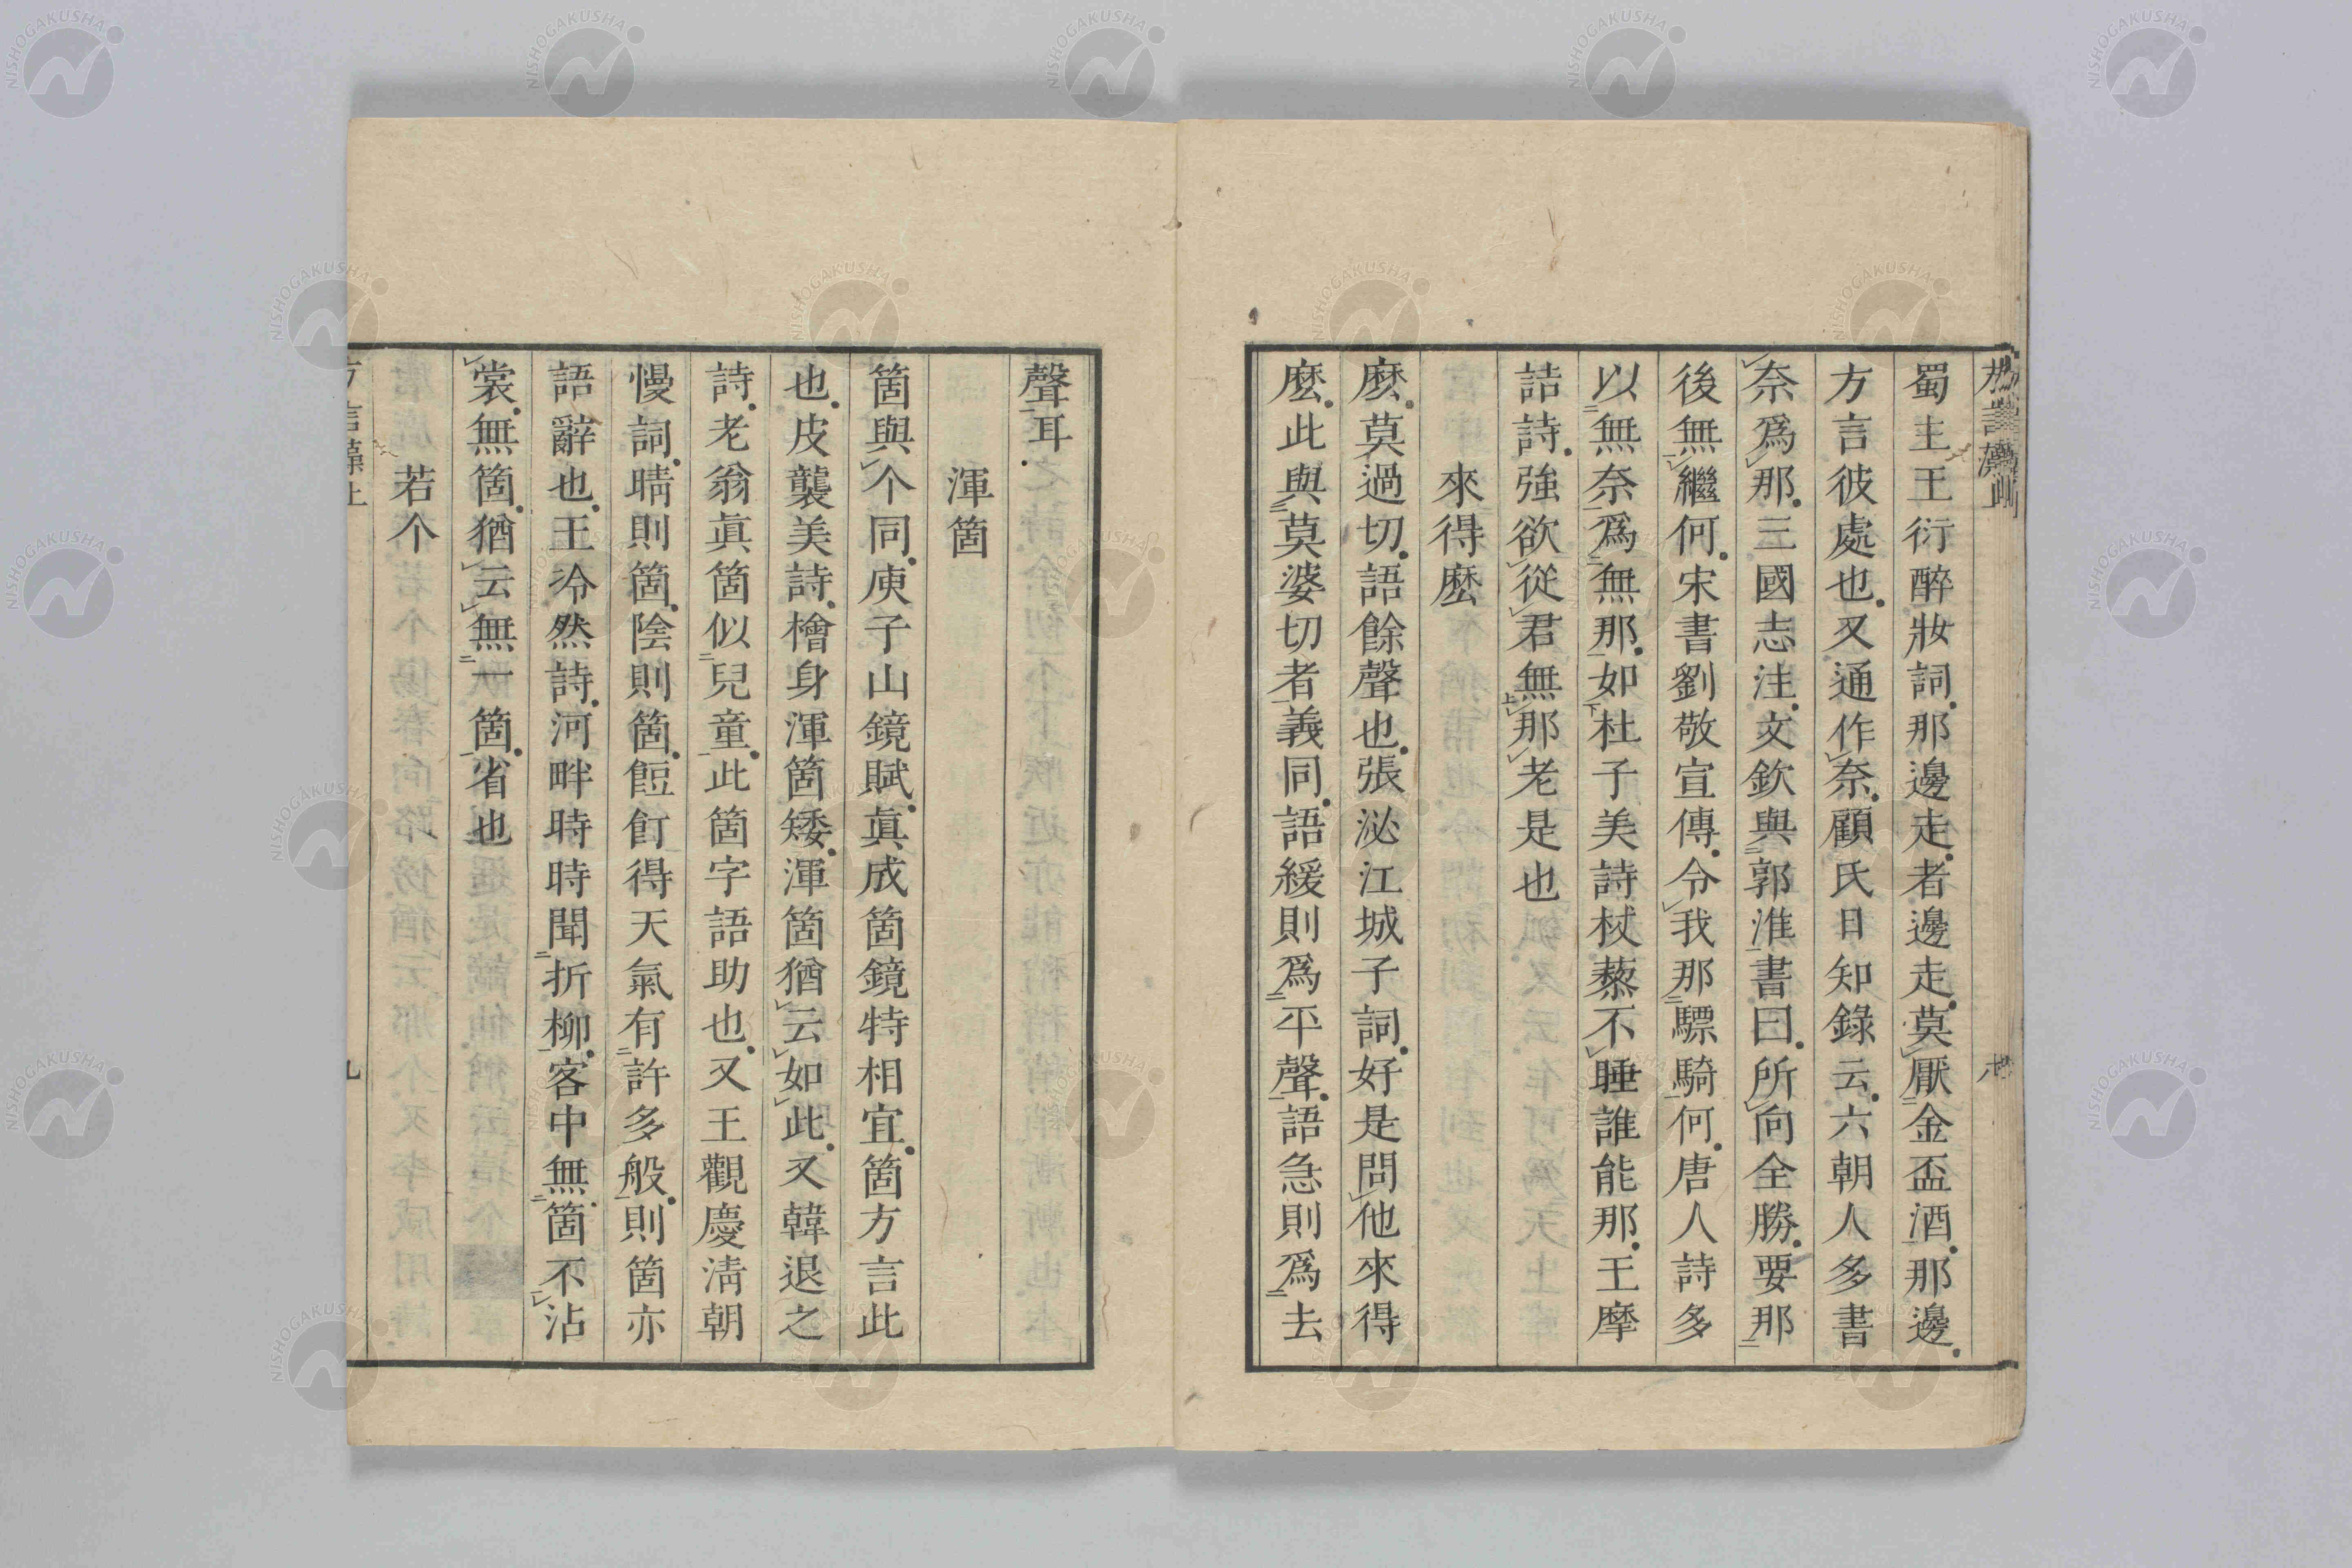 蜀主王衍醉妝詞。那邊走。者邊走。莫厭金盃酒。那邊。
方言彼處也。又通作奈。顧氏日知錄云。六朝人多書
奈爲那。三國志注。文欽與郭淮書曰。所向全勝。要那
後無繼何。宋書劉敬宣傳。令我那驃騎何。唐人詩多
以無奈爲無那。如杜子美詩杖藜不睡誰能那。王摩
詰詩。強欲從君無那老是也
來得麽
麽。莫過切。語餘聲也。張泌江城子詞。好是問他來得
麽。此與莫婆切者義同。語緩則爲平聲。語急則爲去
聲耳。
渾箇
箇與个同。庾子山鏡賦。眞成箇鏡特相宜。箇方言此
也。皮襲美詩。檜身渾箇矮。渾箇猶云如此。又韓退之
詩。老翁眞箇似兒童。此箇字語助也。又王觀慶淸朝
慢詞。晴則箇。陰則箇。餖飣得天氣有許多般。則箇亦
語辭也。王泠然詩。河畔時時聞折柳。客中無箇不沾
裳。無箇。猶云無一箇。省也
若个
方言藻上
九